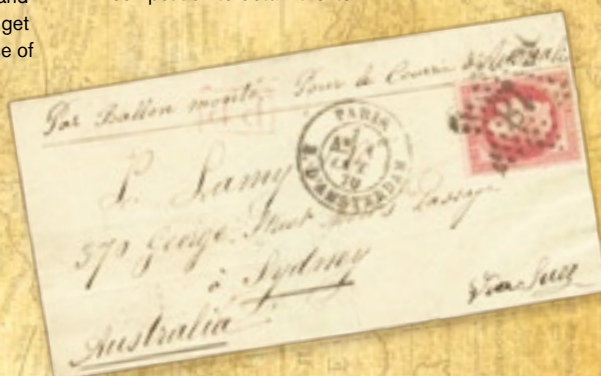 and
get
e of
Par Ballon monté. Pour le Courrier d'Australie
PP
PARIS
R. D'AMSTERDAM
70
P. Lamy
370 George Street Passage
à Sydney
Australia
Via Suez